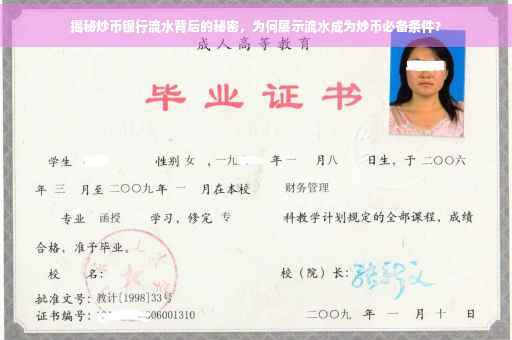 揭秘炒币银行流水背后的秘密，为何展示流水成为炒币必备条件？
成人高等教育
毕业证书
学生 性别 女 ，一九 年 一 月八 日生，于 二〇〇六
年 三 月至 二〇〇九年 一 月在本校 财务管理
专业 函授 学习，修完 专 科教学计划规定的全部课程，成绩
合格，准予毕业。
校 名： 校（院）长：
批准文号：教计[1998]33号
证书编号：1 006001310 二〇〇九 年 一 月 十 日